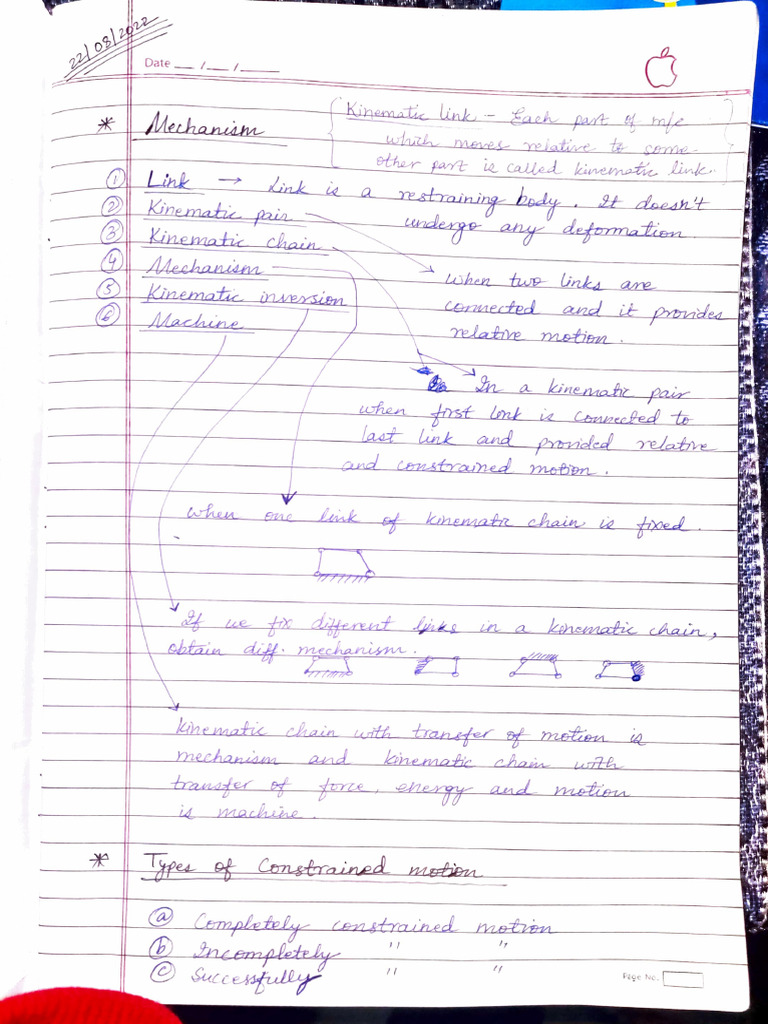 22/08/2022
Date __/__/____
* Mechanism
Kinematic link - Each part of m/c
which moves relative to some
other part is called kinematic link.
① Link → Link is a restraining body. It doesn't
undergo any deformation
② Kinematic pair
③ Kinematic chain
④ Mechanism
⑤ Kinematic inversion
⑥ Machine
When two links are
connected and it provides
relative motion.
In a kinematic pair
when first link is connected to
last link and provided relative
and constrained motion.
When one link of kinematic chain is fixed.
If we fix different links in a kinematic chain,
obtain diff. mechanism.
Kinematic chain with transfer of motion is
mechanism and kinematic chain with
transfer of force, energy and motion
is machine.
* Types of Constrained motion
ⓐ Completely constrained motion
ⓑ Incompletely " "
ⓒ Successfully " "
Page No.